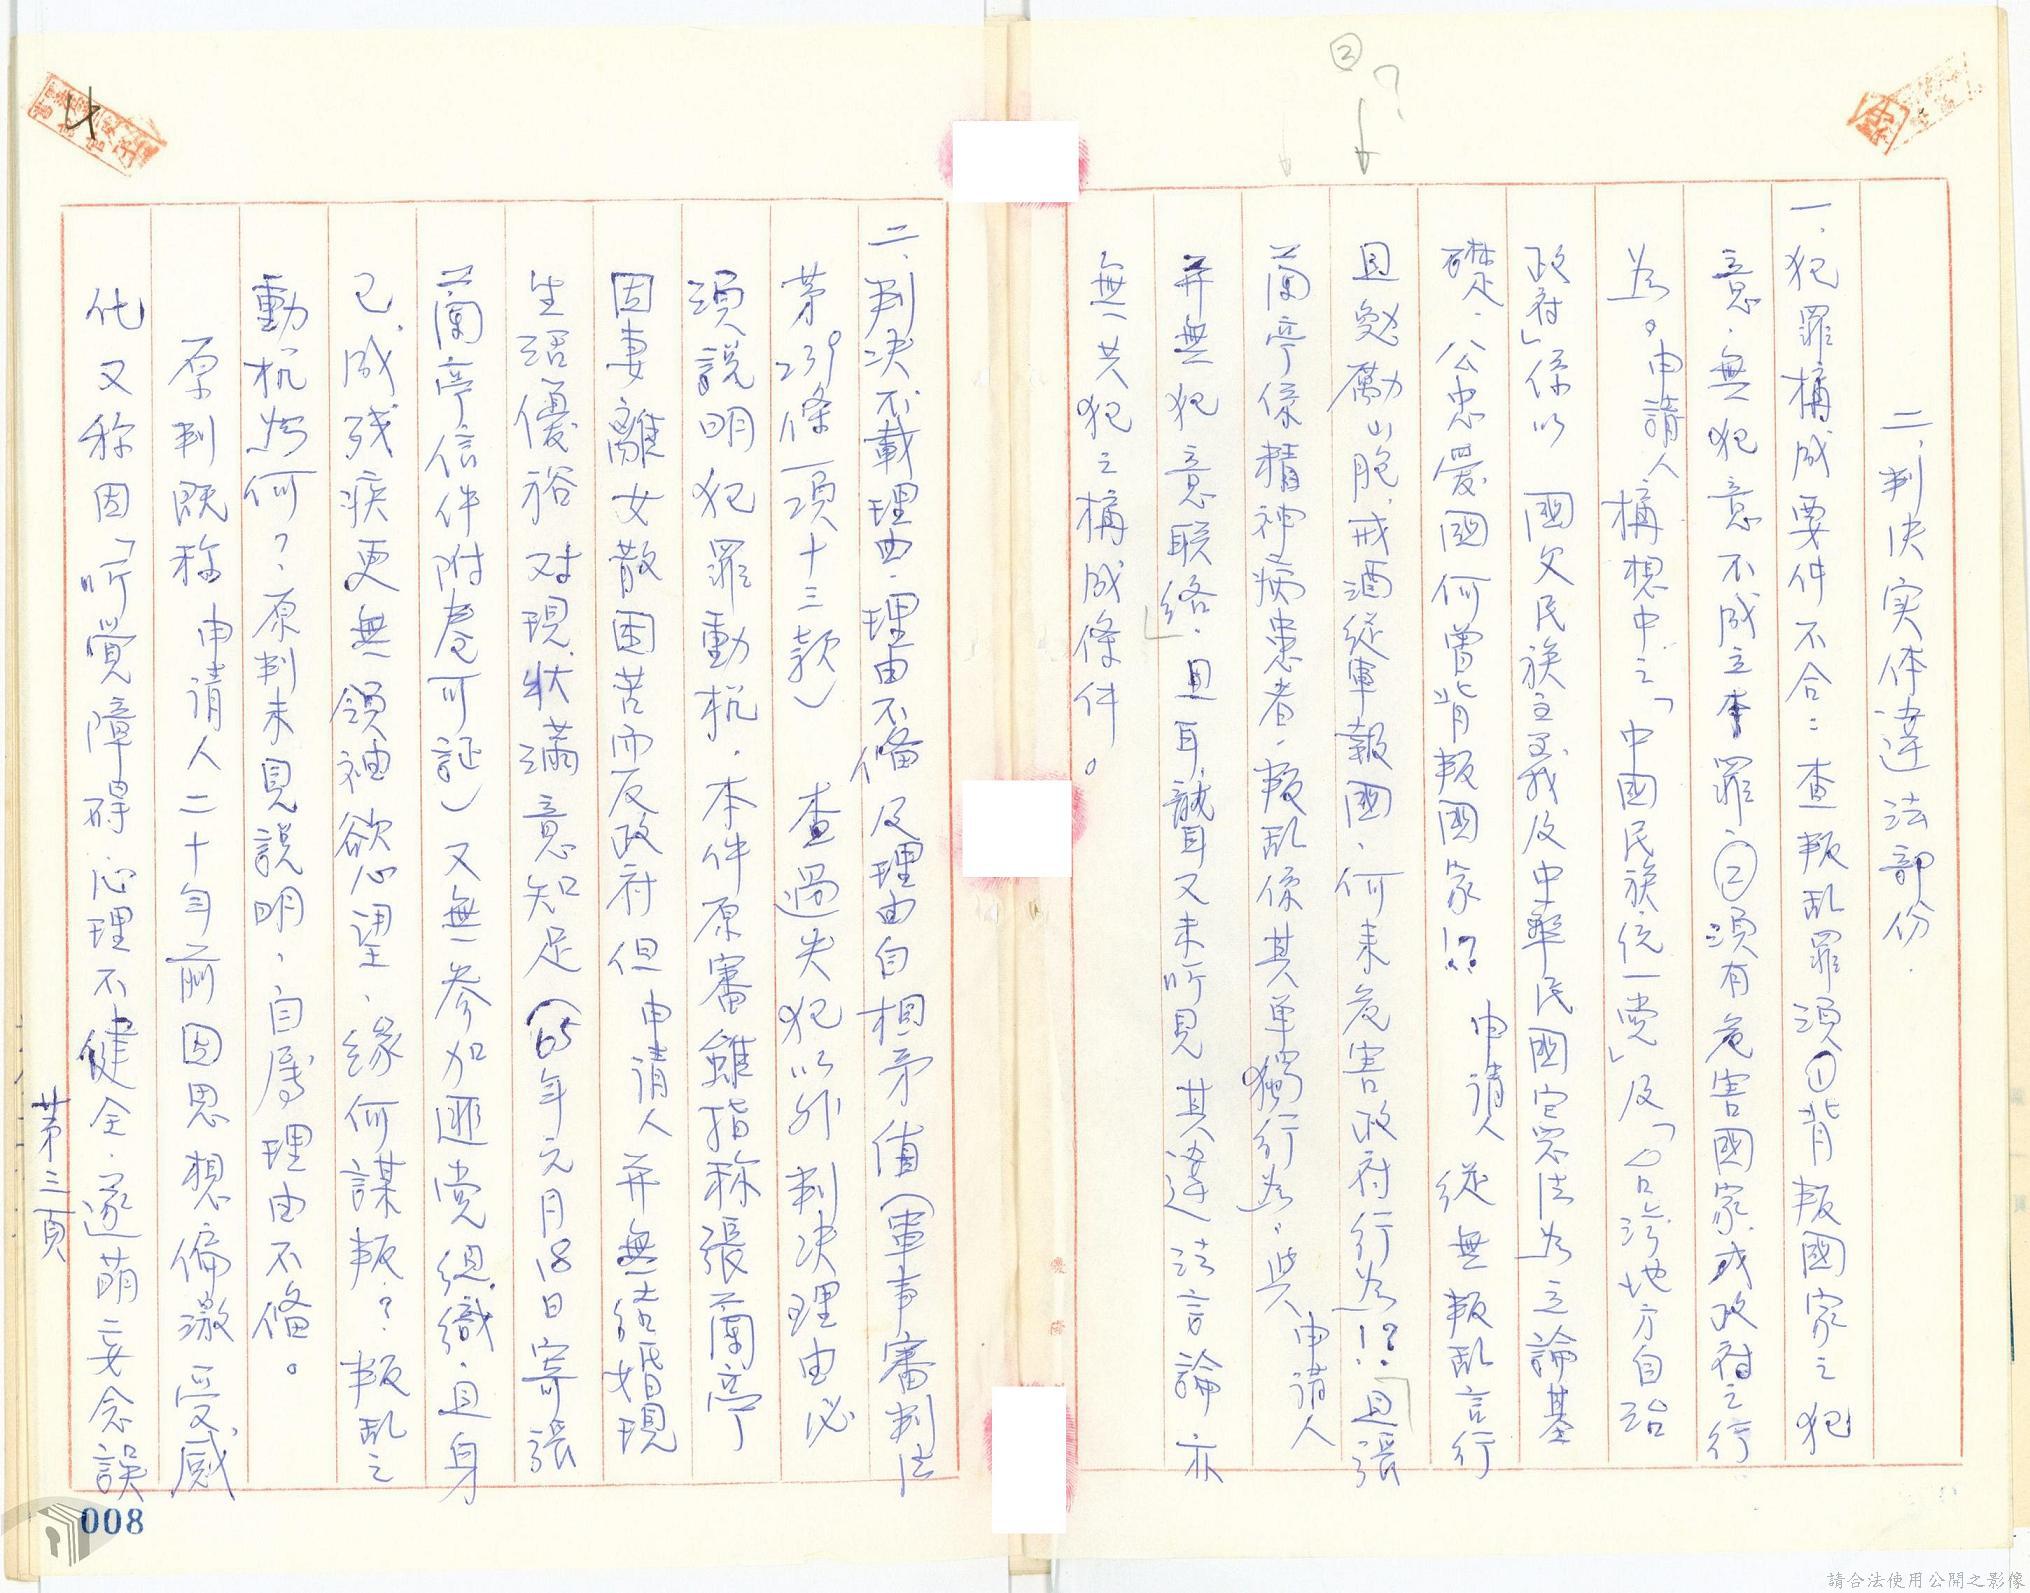 ②
?
二、判決实体違法部份.
一、犯罪構成要件不合：查叛乱罪須①背叛國家之犯
意.無犯意不成立本罪、②須有危害國家或政府之行
為。申請人構想中之「中國民族統一党」及「台湾地方自治
政府」係以 國父民族主義及中華民國宪法為立論基
礎.公忠爱國何曾背叛國家!? 申請人 從無叛乱言行
且勉勵山胞.戒酒從軍報國、何来危害政府行為!?.且張
蘭亭係精神病患者.叛乱係其单獨行為.與申請人
并無犯意联络.且耳聾又未听見其違法言論亦
無共犯之構成條件。
二、判决不載理由.理由不備及理由自相矛值(軍事審判法
第239條一項十三款) 查過失犯以外判决理由必
須説明犯罪動机.本件原審雖指称張蘭亭
因妻離女散困苦而反政府但 申請人并無结婚現
生活優裕 对現状滿意知足(65年元月18日寄張
蘭亭信件附卷可証)又無参加匪党组織.且身
已成残疾更無領袖欲心望.緣何謀叛?.叛乱之
動机為何?原判未見説明、自屬理由不俻。
原判既称 申請人二十年前因思想偏激受感
化又称因「听覚障碍心理不健全.遂萌妄念誤
第三頁
008
請合法使用公開之影像